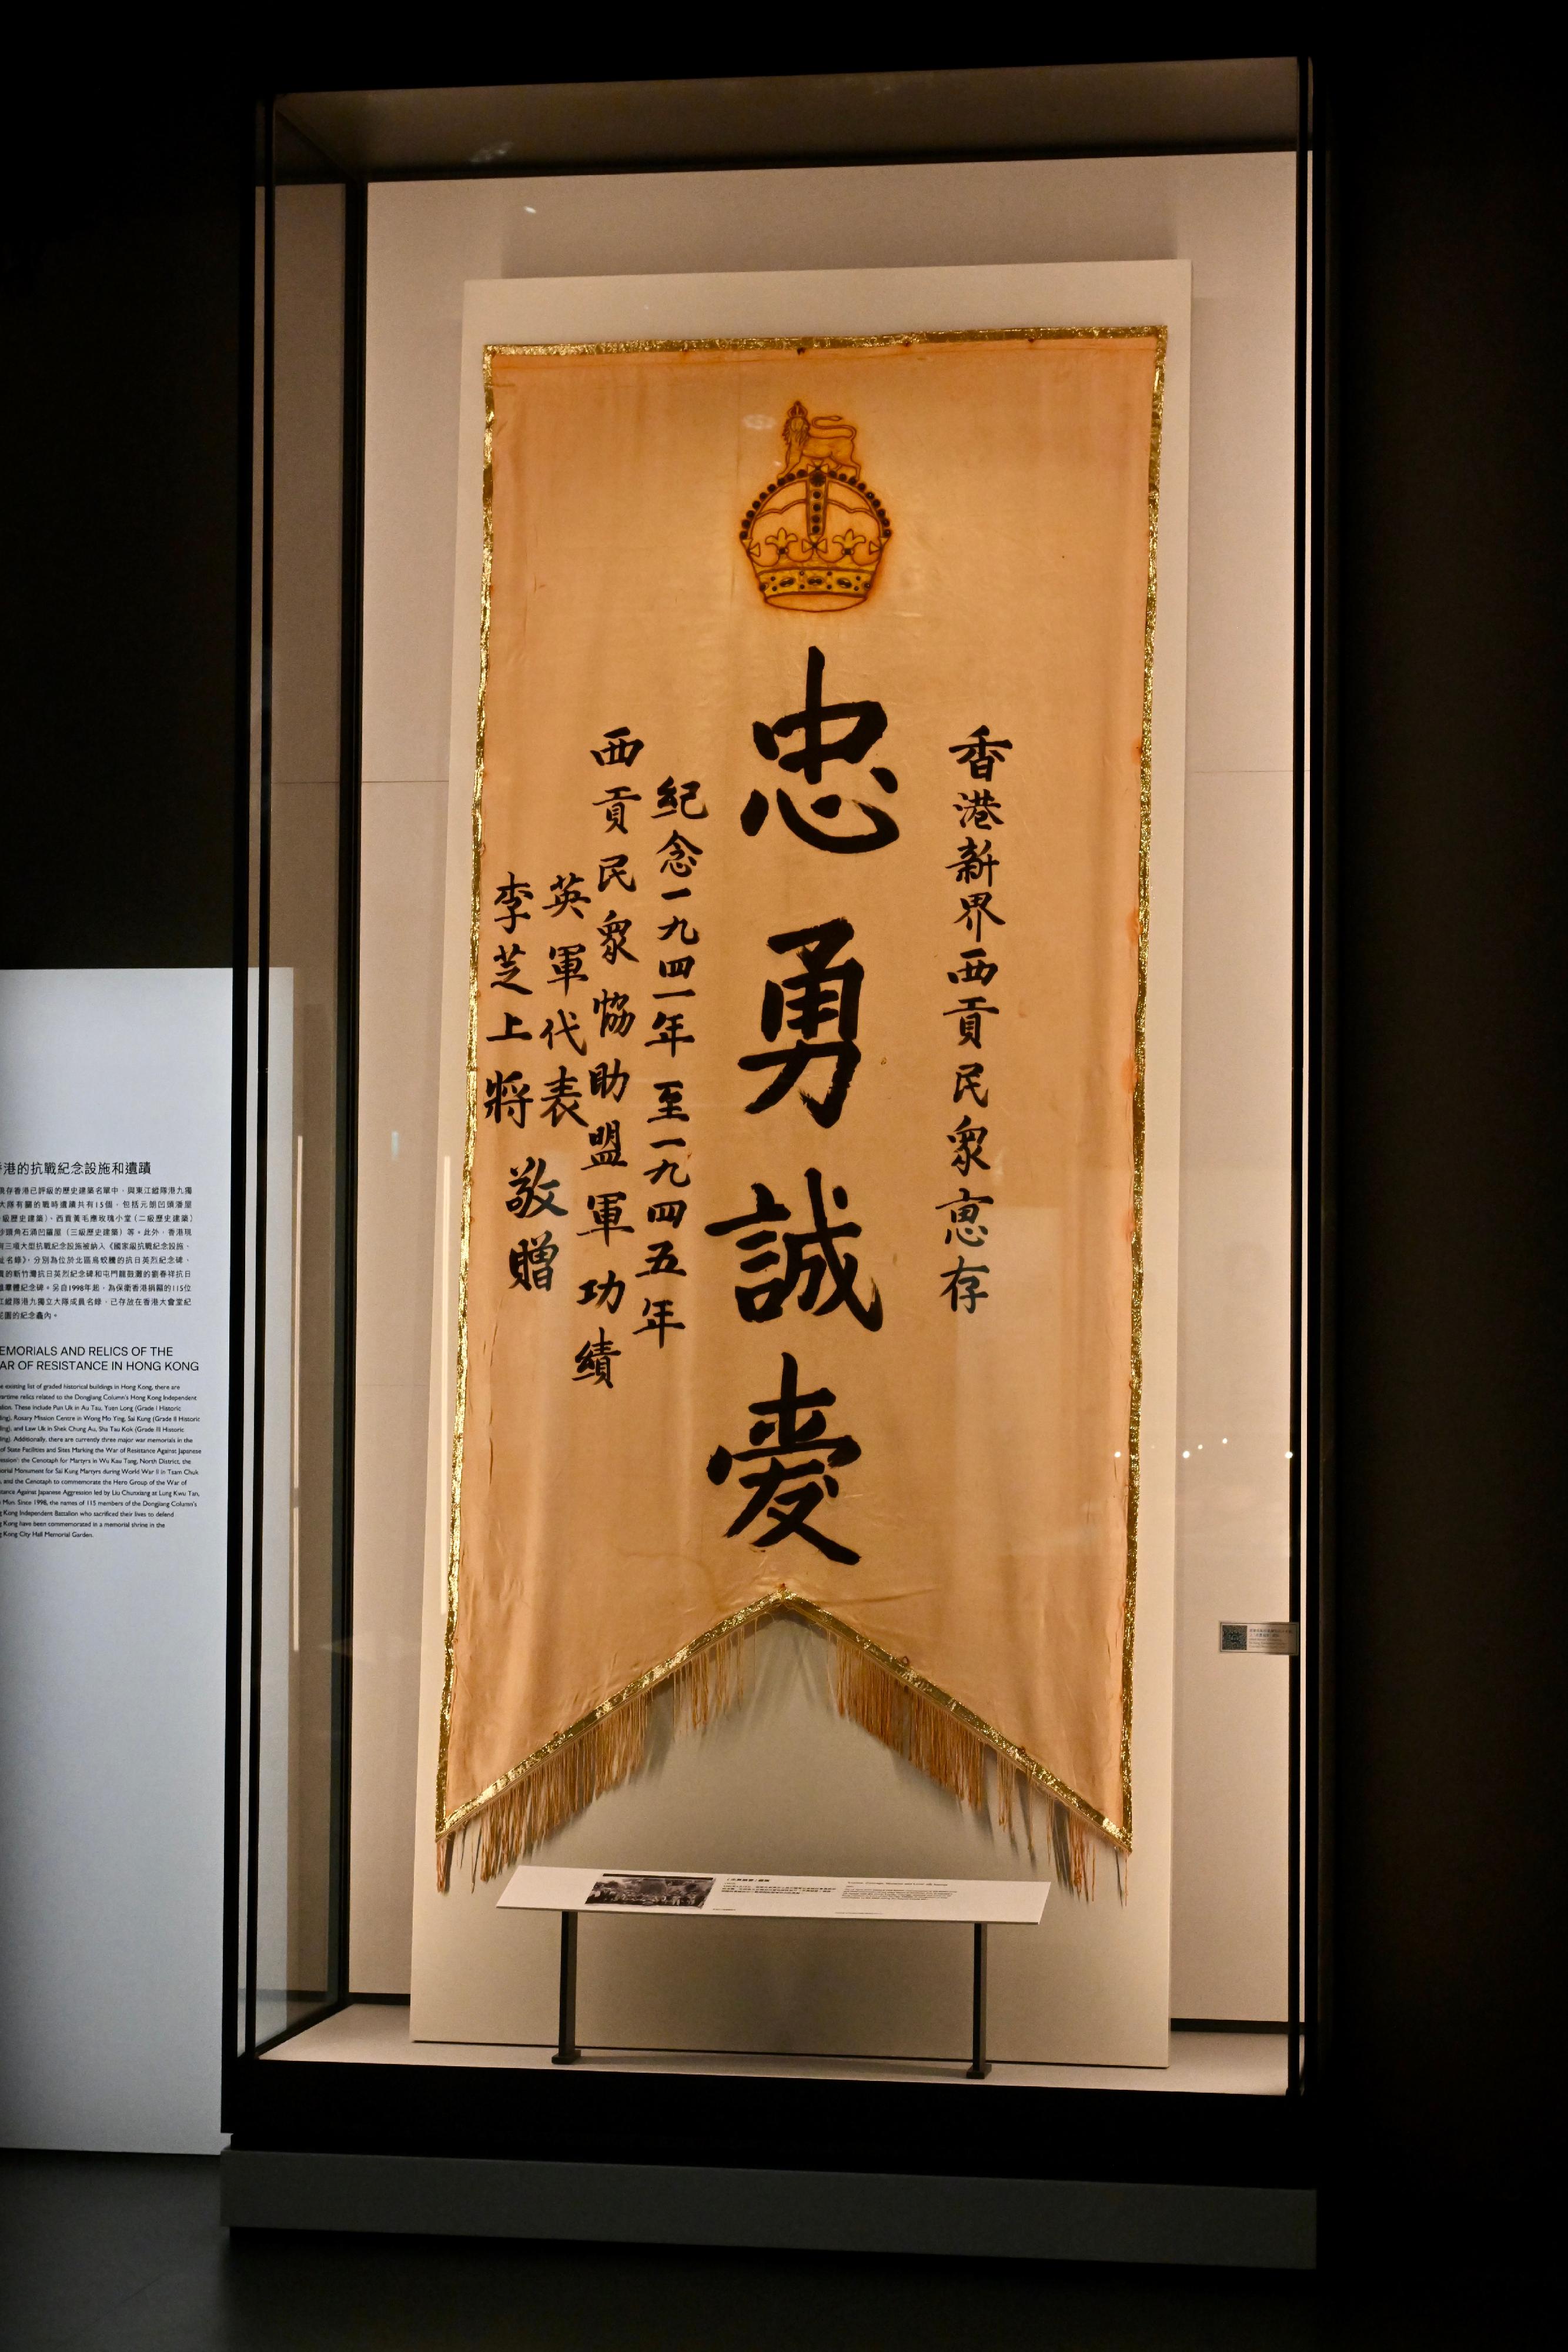 香港新界西貢民眾惠存
忠勇誠愛
紀念一九四一年至一九四五年
西貢民眾恊助盟軍功績
英軍代表
李芝上將
敬贈
港的抗戰紀念設施和遺蹟
存香港已評級的歷史建築名單中，與東江縱隊港九獨
大隊有關的戰時遺蹟共有15個，包括元朗凹頭潘屋
級歷史建築）、西貢黃毛應玫瑰小堂（二級歷史建築）
沙頭角石涌凹羅屋（三級歷史建築）等。此外，香港現
三項大型抗戰紀念設施被納入《國家級抗戰紀念設施、
名錄》，分別為位於北區烏蛟騰的抗日英烈紀念碑、
的斬竹灣抗日英烈紀念碑和屯門龍鼓灘的劉春祥抗日
群體紀念碑。另自1998年起，為保衛香港捐軀的115位
江縱隊港九獨立大隊成員名錄，已存放在香港大會堂紀
花園的紀念龕內。
EMORIALS AND RELICS OF THE
AR OF RESISTANCE IN HONG KONG
e existing list of graded historical buildings in Hong Kong, there are
artime relics related to the Dongjiang Column's Hong Kong Independent
alion. These include Pun Uk in Au Tau, Yuen Long (Grade I Historic
ding), Rosary Mission Centre in Wong Mo Ying, Sai Kung (Grade II Historic
ding), and Law Uk in Shek Chung Au, Sha Tau Kok (Grade III Historic
ding). Additionally, there are currently three major war memorials in the
of State Facilities and Sites Marking the War of Resistance Against Japanese
ession': the Cenotaph for Martyrs in Wu Kau Tang, North District, the
orial Monument for Sai Kung Martyrs during World War II in Tsam Chuk
, and the Cenotaph to commemorate the Hero Group of the War of
stance Against Japanese Aggression led by Liu Chunxiang at Lung Kwu Tan,
Mun. Since 1998, the names of 115 members of the Dongjiang Column's
g Kong Independent Battalion who sacrificed their lives to defend
g Kong have been commemorated in a memorial shrine in the
g Kong City Hall Memorial Garden.